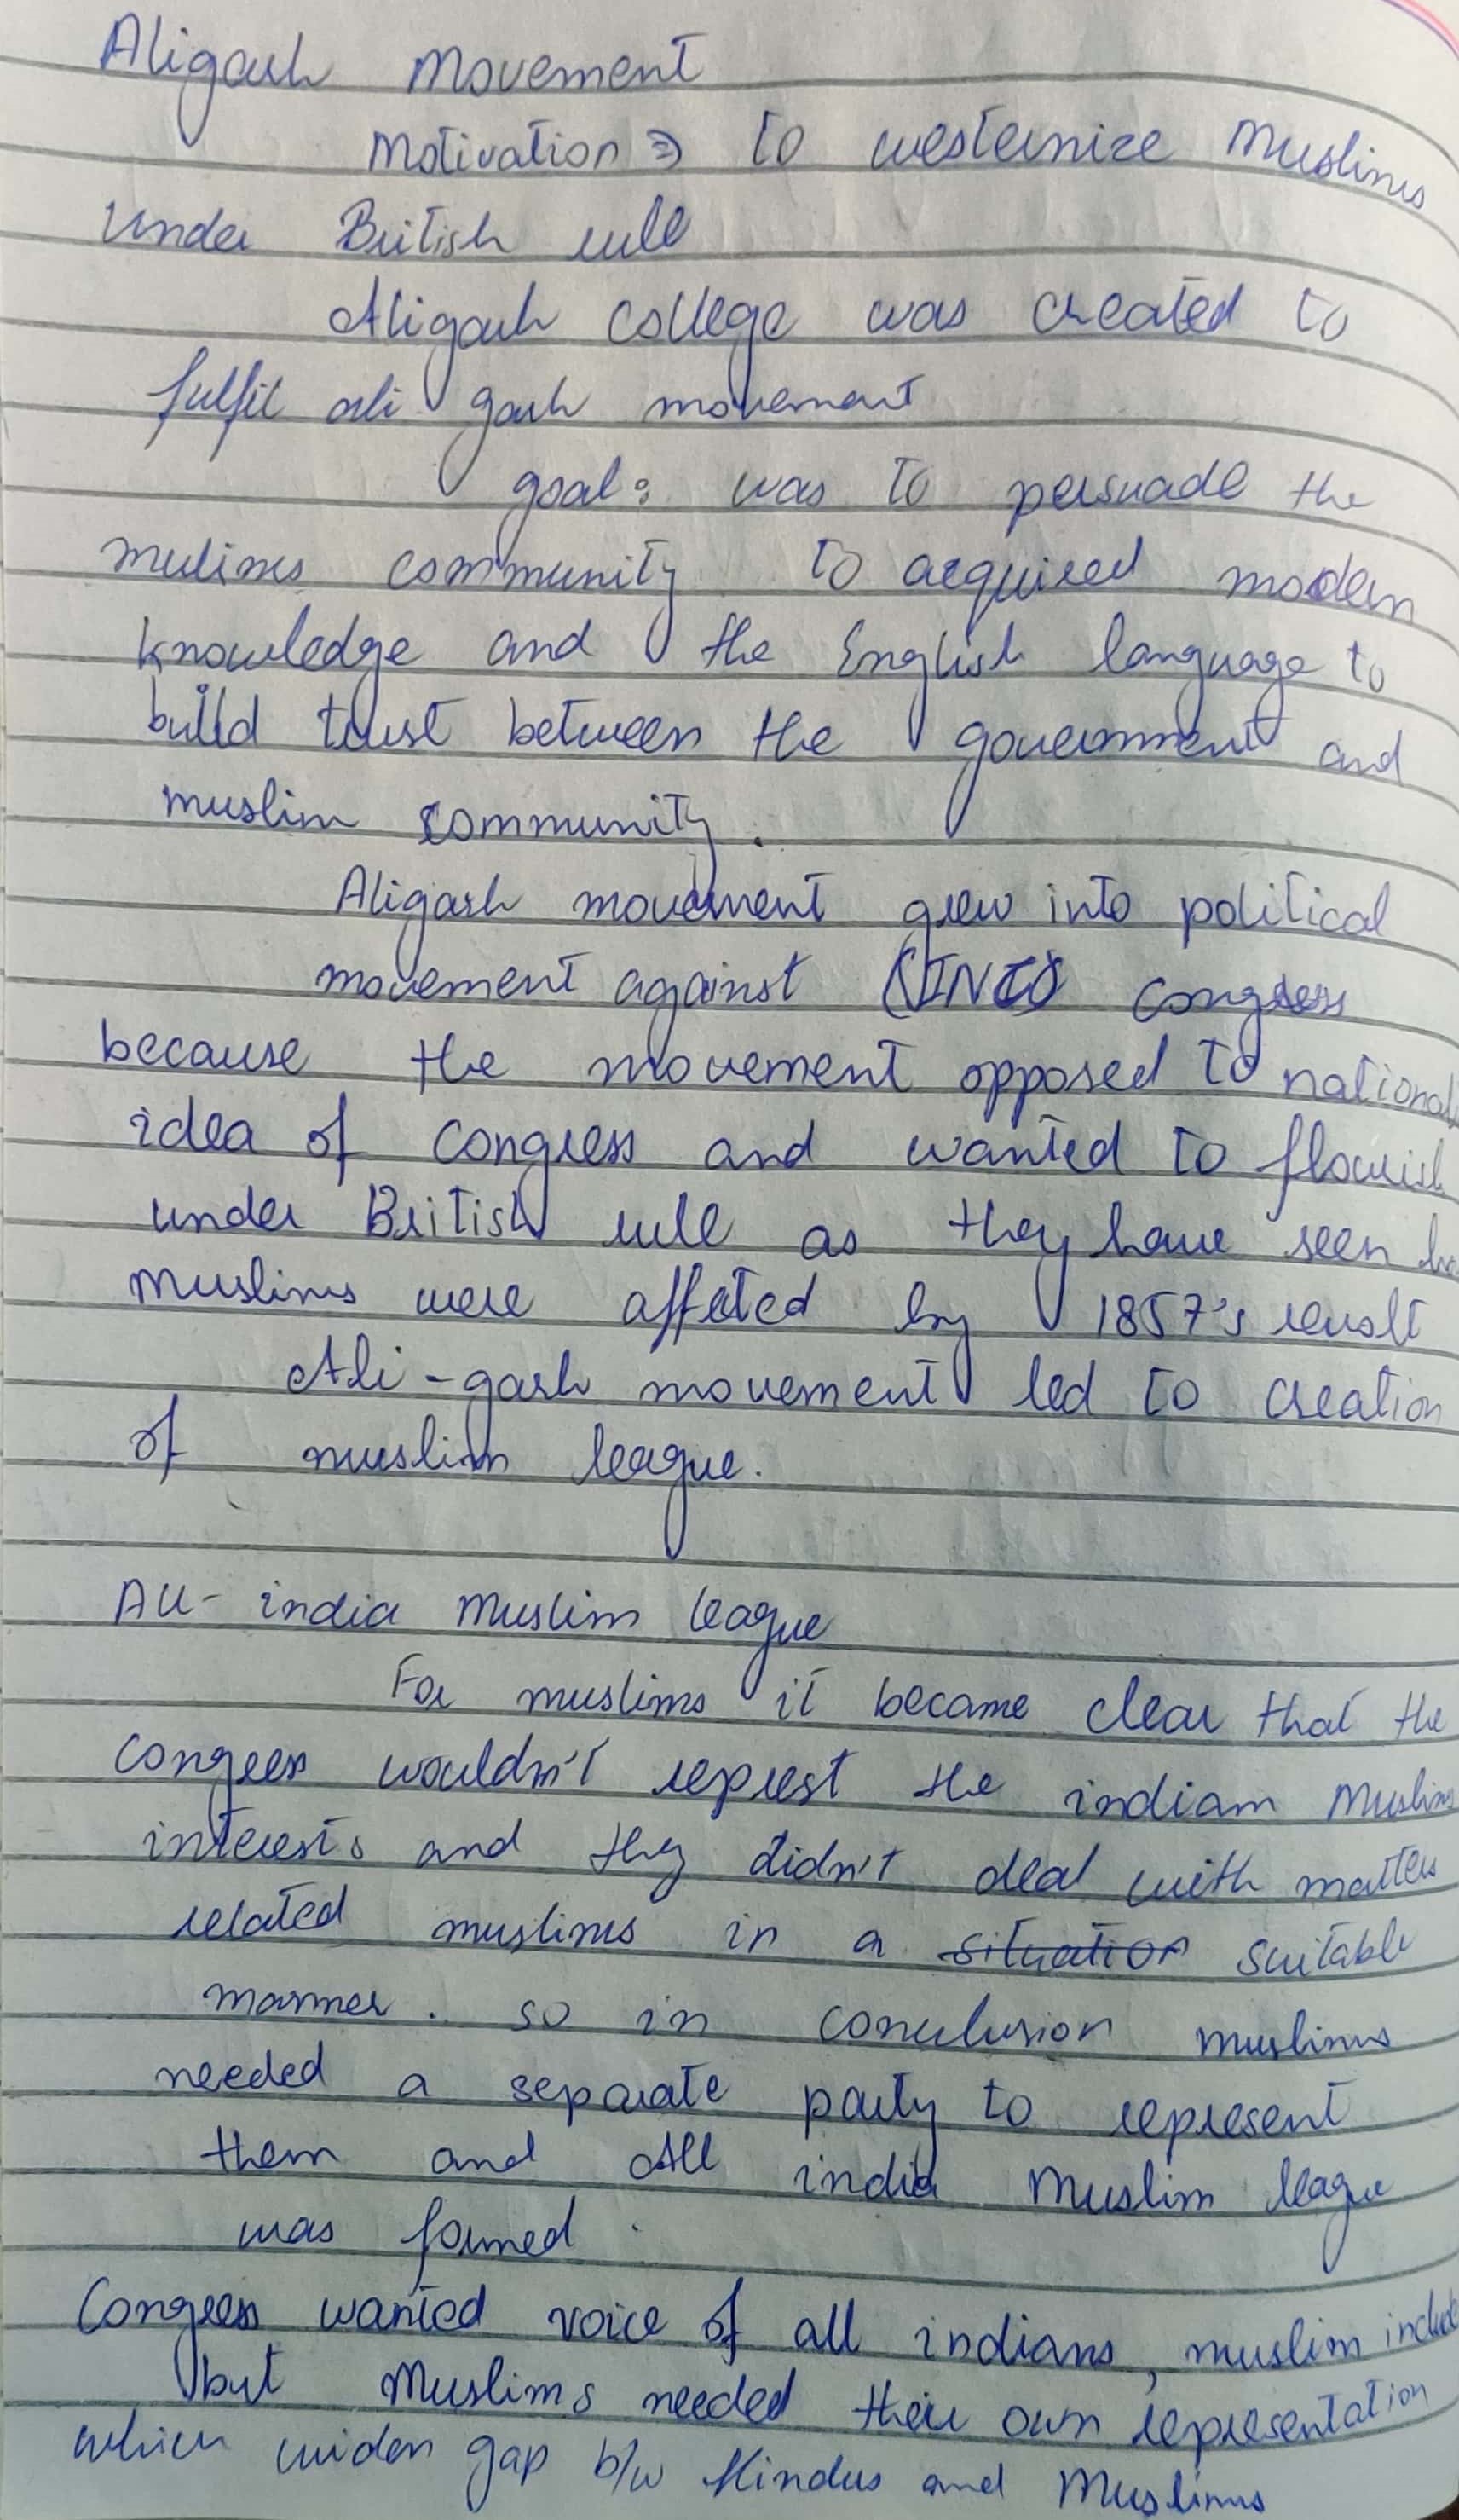 Aligarh Movement
Motivation ⇒ to westernize Muslims
under British rule
Aligarh college was created to
fulfil ali garh movement
goal: was to persuade the
mulims community to acquired modern
knowledge and the English language to
build trust between the government and
muslim community.
Aligarh movement grew into political
movement against (INC) congress
because the movement opposed to national
idea of congress and wanted to flourish
under British rule as they have seen
muslims were affeted by 1857's revolt
Ali-garh movement led to creation
of muslim league.
All-india Muslim league
For muslims it became clear that the
congress wouldn't represt the indian Muslims
interests and they didn't deal with matters
related muslims in a situation suitable
manner. so in conculusion muslims
needed a separate party to represent
them and All india Muslim league
was formed.
Congress wanted voice of all indians, muslim include
but Muslims needed their own representation
which widen gap b/w Hindus and Muslims